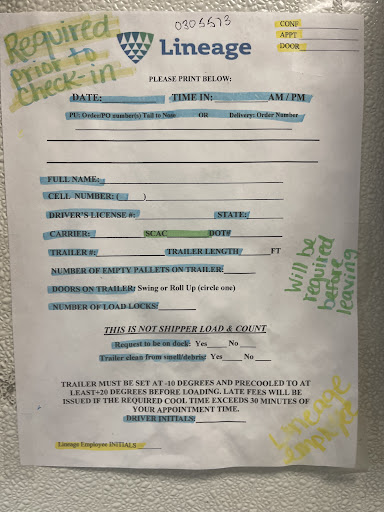 Required
Prior to
check-in
0305573
Lineage
CONF
APPT
DOOR
PLEASE PRINT BELOW:
DATE: TIME IN: AM / PM
PU: Order/PO number(s) Tail to Nose OR Delivery: Order Number
FULL NAME:
CELL NUMBER: ( )
DRIVER'S LICENSE #: STATE:
CARRIER: SCAC DOT#
TRAILER #: TRAILER LENGTH FT
NUMBER OF EMPTY PALLETS ON TRAILER:
DOORS ON TRAILER: Swing or Roll Up (circle one)
NUMBER OF LOAD LOCKS:
Will be
required
before
leaving
THIS IS NOT SHIPPER LOAD & COUNT
Request to be on dock: Yes No
Trailer clean from smell/debris: Yes No
TRAILER MUST BE SET AT -10 DEGREES AND PRECOOLED TO AT
LEAST+20 DEGREES BEFORE LOADING. LATE FEES WILL BE
ISSUED IF THE REQUIRED COOL TIME EXCEEDS 30 MINUTES OF
YOUR APPOINTMENT TIME.
DRIVER INITIALS:
Lineage
Employee
Lineage Employee INITIALS